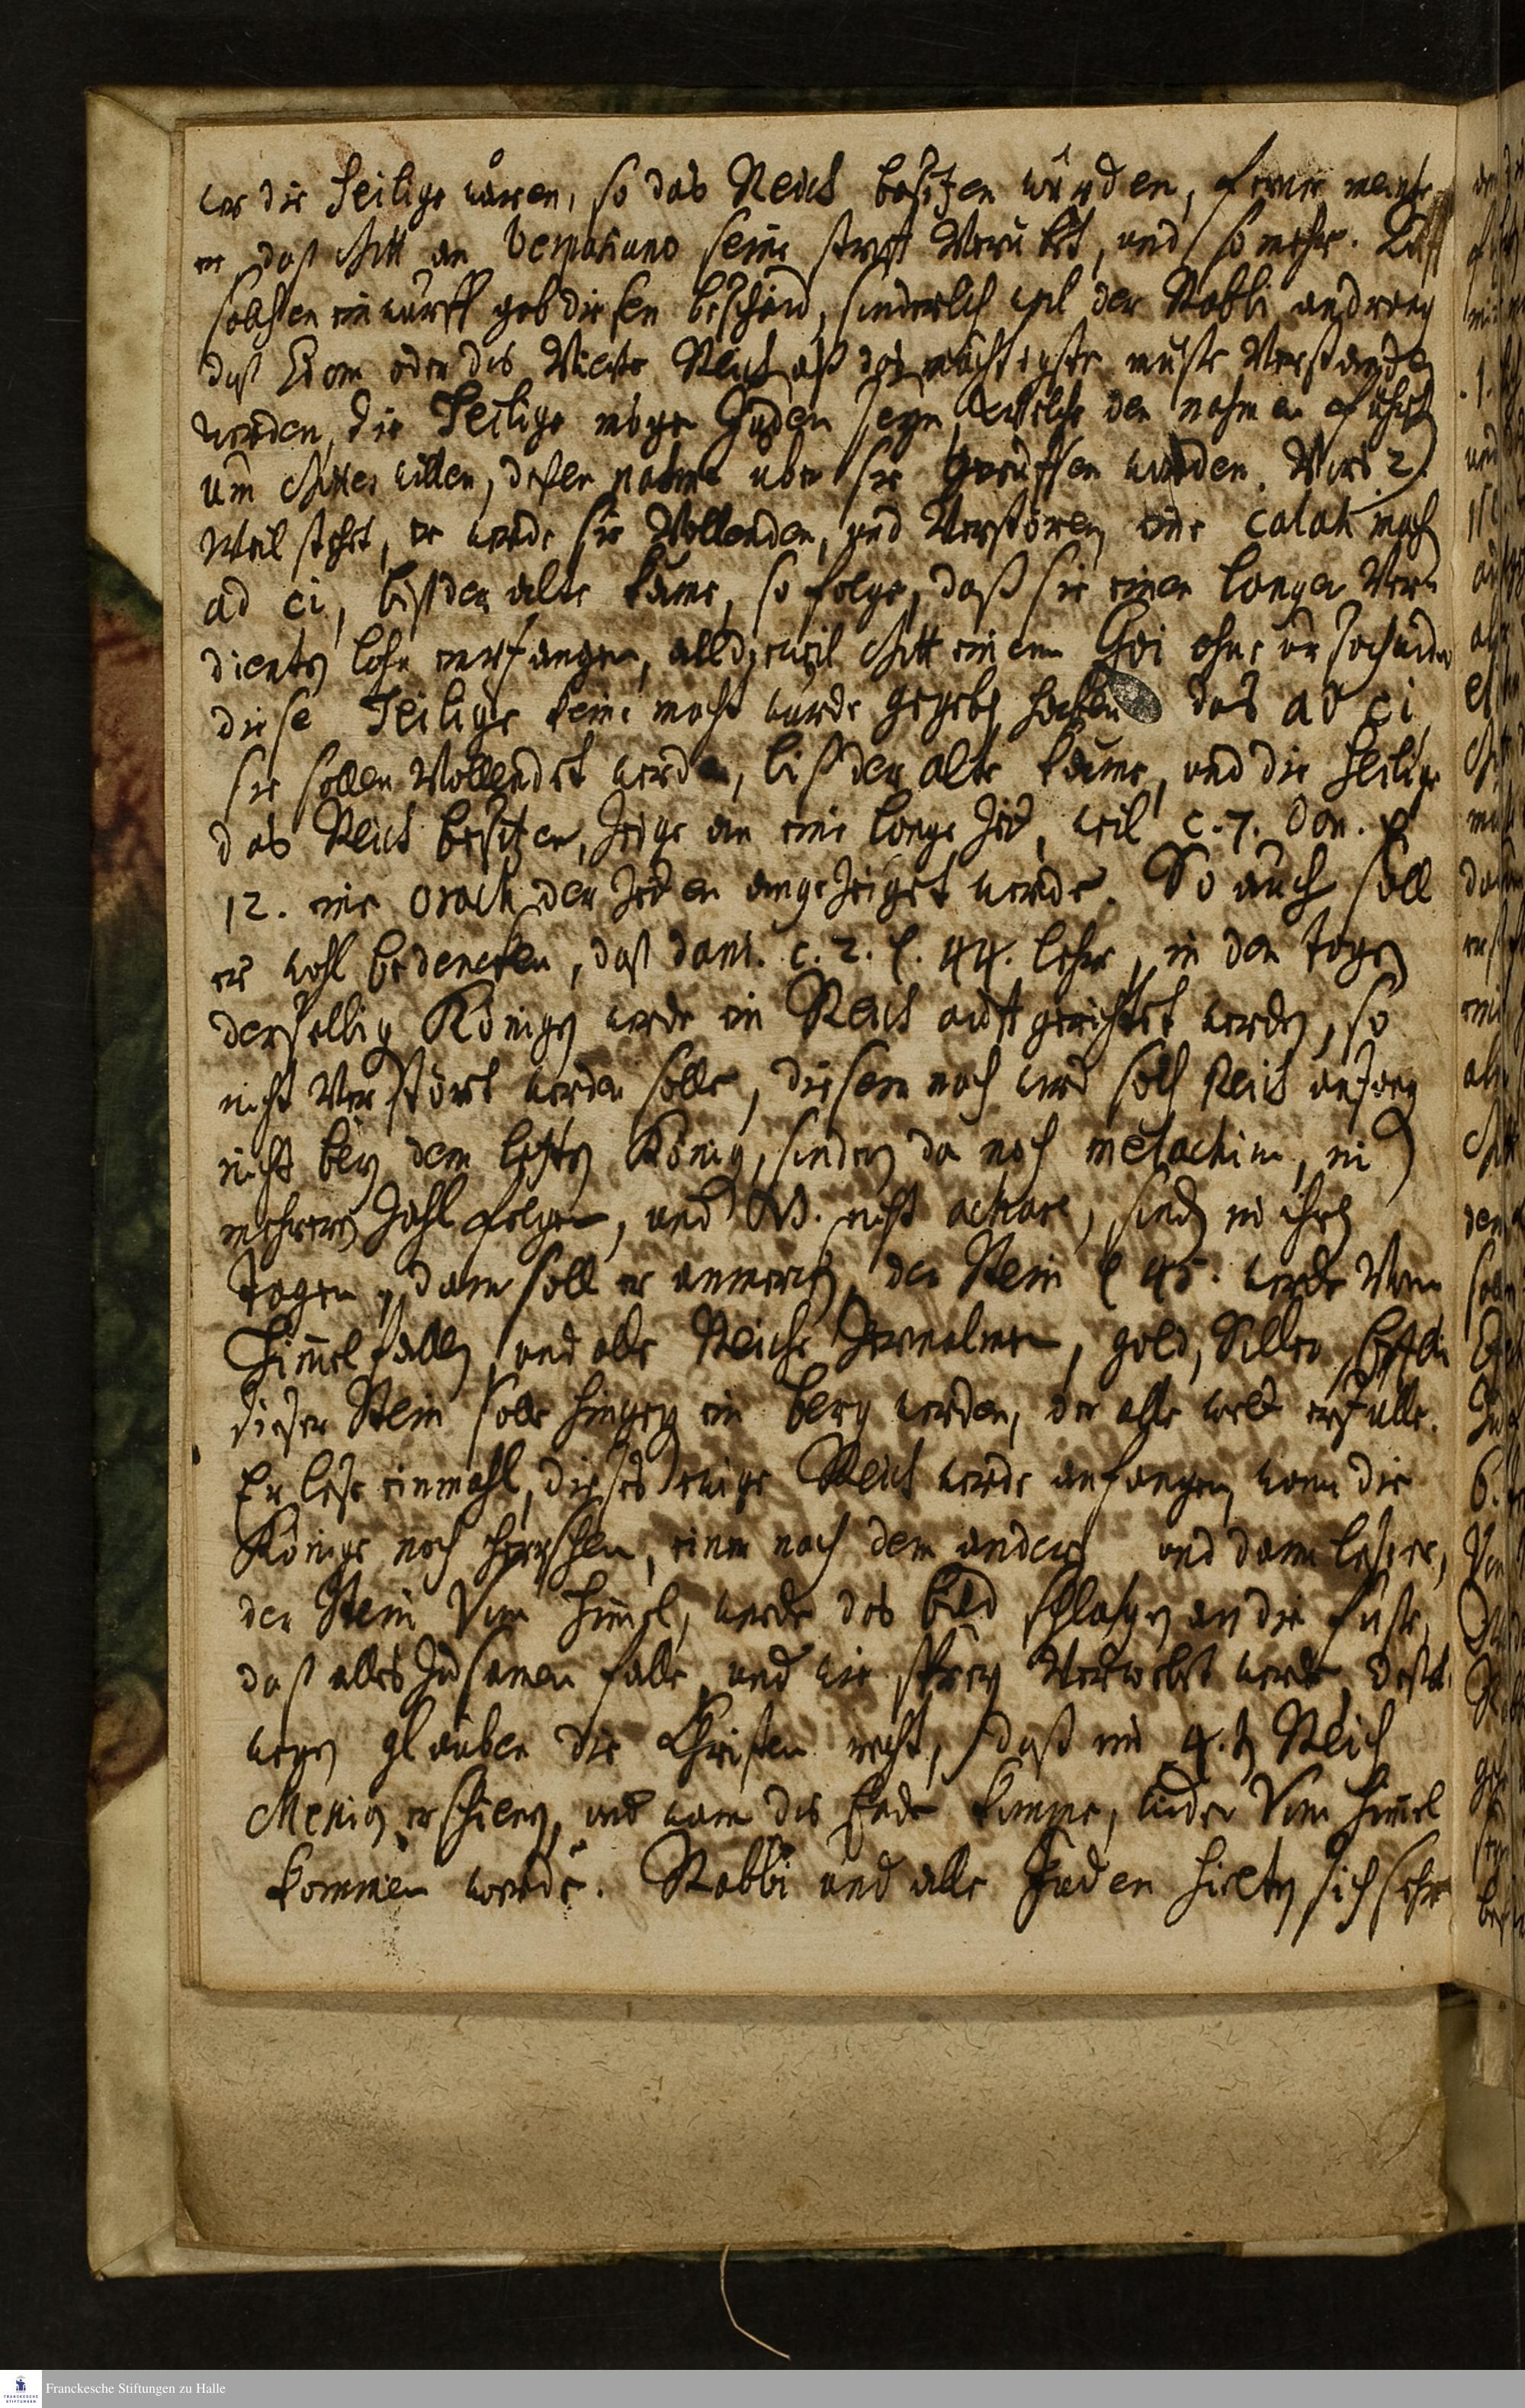 wer die Heilige wären, so das Reich besitzen würden, ferner meinte
er, daß Gott an Vespasiano seine straff Verübet, und so mehr. Auff
solchen einwurff gab diesen bescheid, sinderlich weil der Rabbi andrang
daß Edom oder das Vierte Reich alß das mächtigste muste Verstanden
werden, die Heilige mögen Juden seyn, welche den nahmen führet
um Gottes willen, deßen nahme über sie geruffen worden. Vers 2.
Weil stehet, er werde sie Vollenden, und Verstören, eine calah nach
ad ci, biß der alte käme, so folge, daß sie einen langen Ver-
dienten lohn empfangen, alldieweil Gott einem Goi ohne ursach wider
diese Heilige keine macht würde gegeben haben das ad ci
sie sollen Vollendet werden, biß der alte käme, und die heilige
das Reich besitzen, zeige an eine lange Zeit, weil c. 7. Dan. v
12. eine orach der Zeiten angezeiget werde. So auch soll
er wohl bedencken, daß Dani. c. 2. v. 44. lehre, in den tagen
derselbig Königen werde ein Reich auffgerichtet werden, so
nicht Verstört werden solle, diesem nach wird solch Reich anfang
nicht bey dem letzten König, sindern da noch melachim, in
mehrern Zahl folgen, und N. nicht achare, sindern in ihren
tagen, dann soll er anmercken, der Stein v 45. werde Vom
Himmel fallen, und alle Reiche Zermalmen, gold, Silber,
dieser Stein solle hingegen ein berg werden, der alle welt erfülle.
Er lese einmahl, dieses ewige Reich werde anfangen, wann die
Könige noch herrschen, einer nach dem andern und dann lese er,
der Stein Vom himmel, werde das bild schlagen an die füsse,
daß alles Zusamen falle, und wie spreu Verwebet werde, deßt-
wegen glauben die Christen recht, daß im 4.ten Reich
Messias erschienen, und wann das Ende komme, wieder Vom himmel
kommen werde. Rabbi und alle Juden hielten sich sehr
Franckesche Stiftungen zu Halle